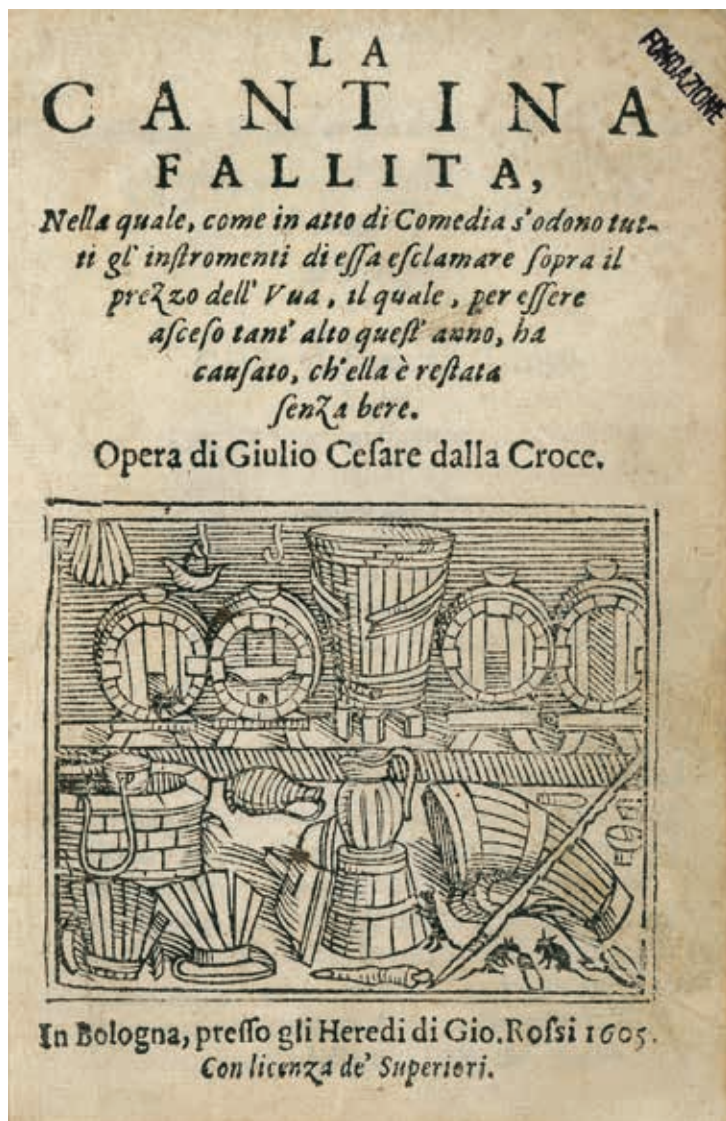 LA
CANTINA
FALLITA,
Nella quale, come in atto di Comedia s'odono tut-
ti gl' inſtromenti di eſſa eſclamare ſopra il
prezzo dell' Vua, il quale, per eſſere
aſceſo tant' alto queſt' anno, ha
cauſato, ch'ella è reſtata
ſenza bere.
Opera di Giulio Ceſare dalla Croce.
In Bologna, preſſo gli Heredi di Gio. Roſſi 1605.
Con licenza de' Superiori.
FONDAZIONE